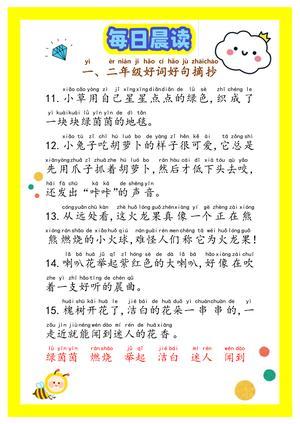 每日晨读
yī èr nián jí hǎo cí hǎo jù zhāi chāo
一、二年级好词好句摘抄
xiǎo cǎo yòng zì jǐ xīng xīng diǎn diǎn de lǜ sè zhī chéng le
11. 小草用自己星星点点的绿色，织成了
yí kuài kuài lǜ yīn yīn de dì tǎn
一块块绿茵茵的地毯。
xiǎo tù zi chī hú luó bo de yàng zi hěn kě ài tā zǒng shì
12. 小兔子吃胡萝卜的样子很可爱，它总是
xiān yòng zhuǎ zi zhuā zhe hú luó bo rán hòu cái dī xià tóu qù yǎo
先用爪子抓着胡萝卜，然后才低下头去咬，
hái fā chū kā kā de shēng yīn
还发出“咔咔”的声音。
cóng yuǎn chù kàn zhè huǒ lóng guǒ zhēn xiàng yí gè zhèng zài xióng
13. 从远处看，这火龙果真像一个正在熊
xióng rán shāo de xiǎo huǒ qiú nán guài rén men chēng tā wéi huǒ lóng guǒ
熊燃烧的小火球，难怪人们称它为火龙果！
lǎ ba huā jǔ qǐ zǐ hóng sè de dà lǎ ba hǎo xiàng zài chuī
14. 喇叭花举起紫红色的大喇叭，好像在吹
zhe yì zhī hǎo tīng de chén qǔ
着一支好听的晨曲。
huái shù kāi huā le jié bái de huā duǒ yí chuàn chuàn de yì
15. 槐树开花了，洁白的花朵一串串的，一
zǒu jìn jiù néng wén dào mí rén de huā xiāng
走近就能闻到迷人的花香。
lǜ yīn yīn rán shāo jǔ qǐ jié bái mí rén wén dào
绿茵茵 燃烧 举起 洁白 迷人 闻到